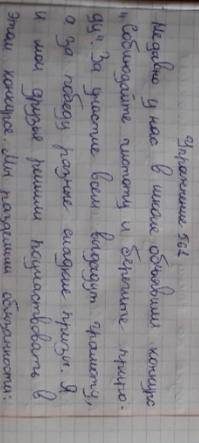 Упражнение 562
Недавно у нас в школе объявили конкурс
„Соблюдайте чистоту и берегите приро-
ду“. За участие всем выдадут грамоту,
а за победу разные сладкие призы. Я
и мои друзья решили поучаствовать в
этом конкурсе. Мы разделили обязанности: